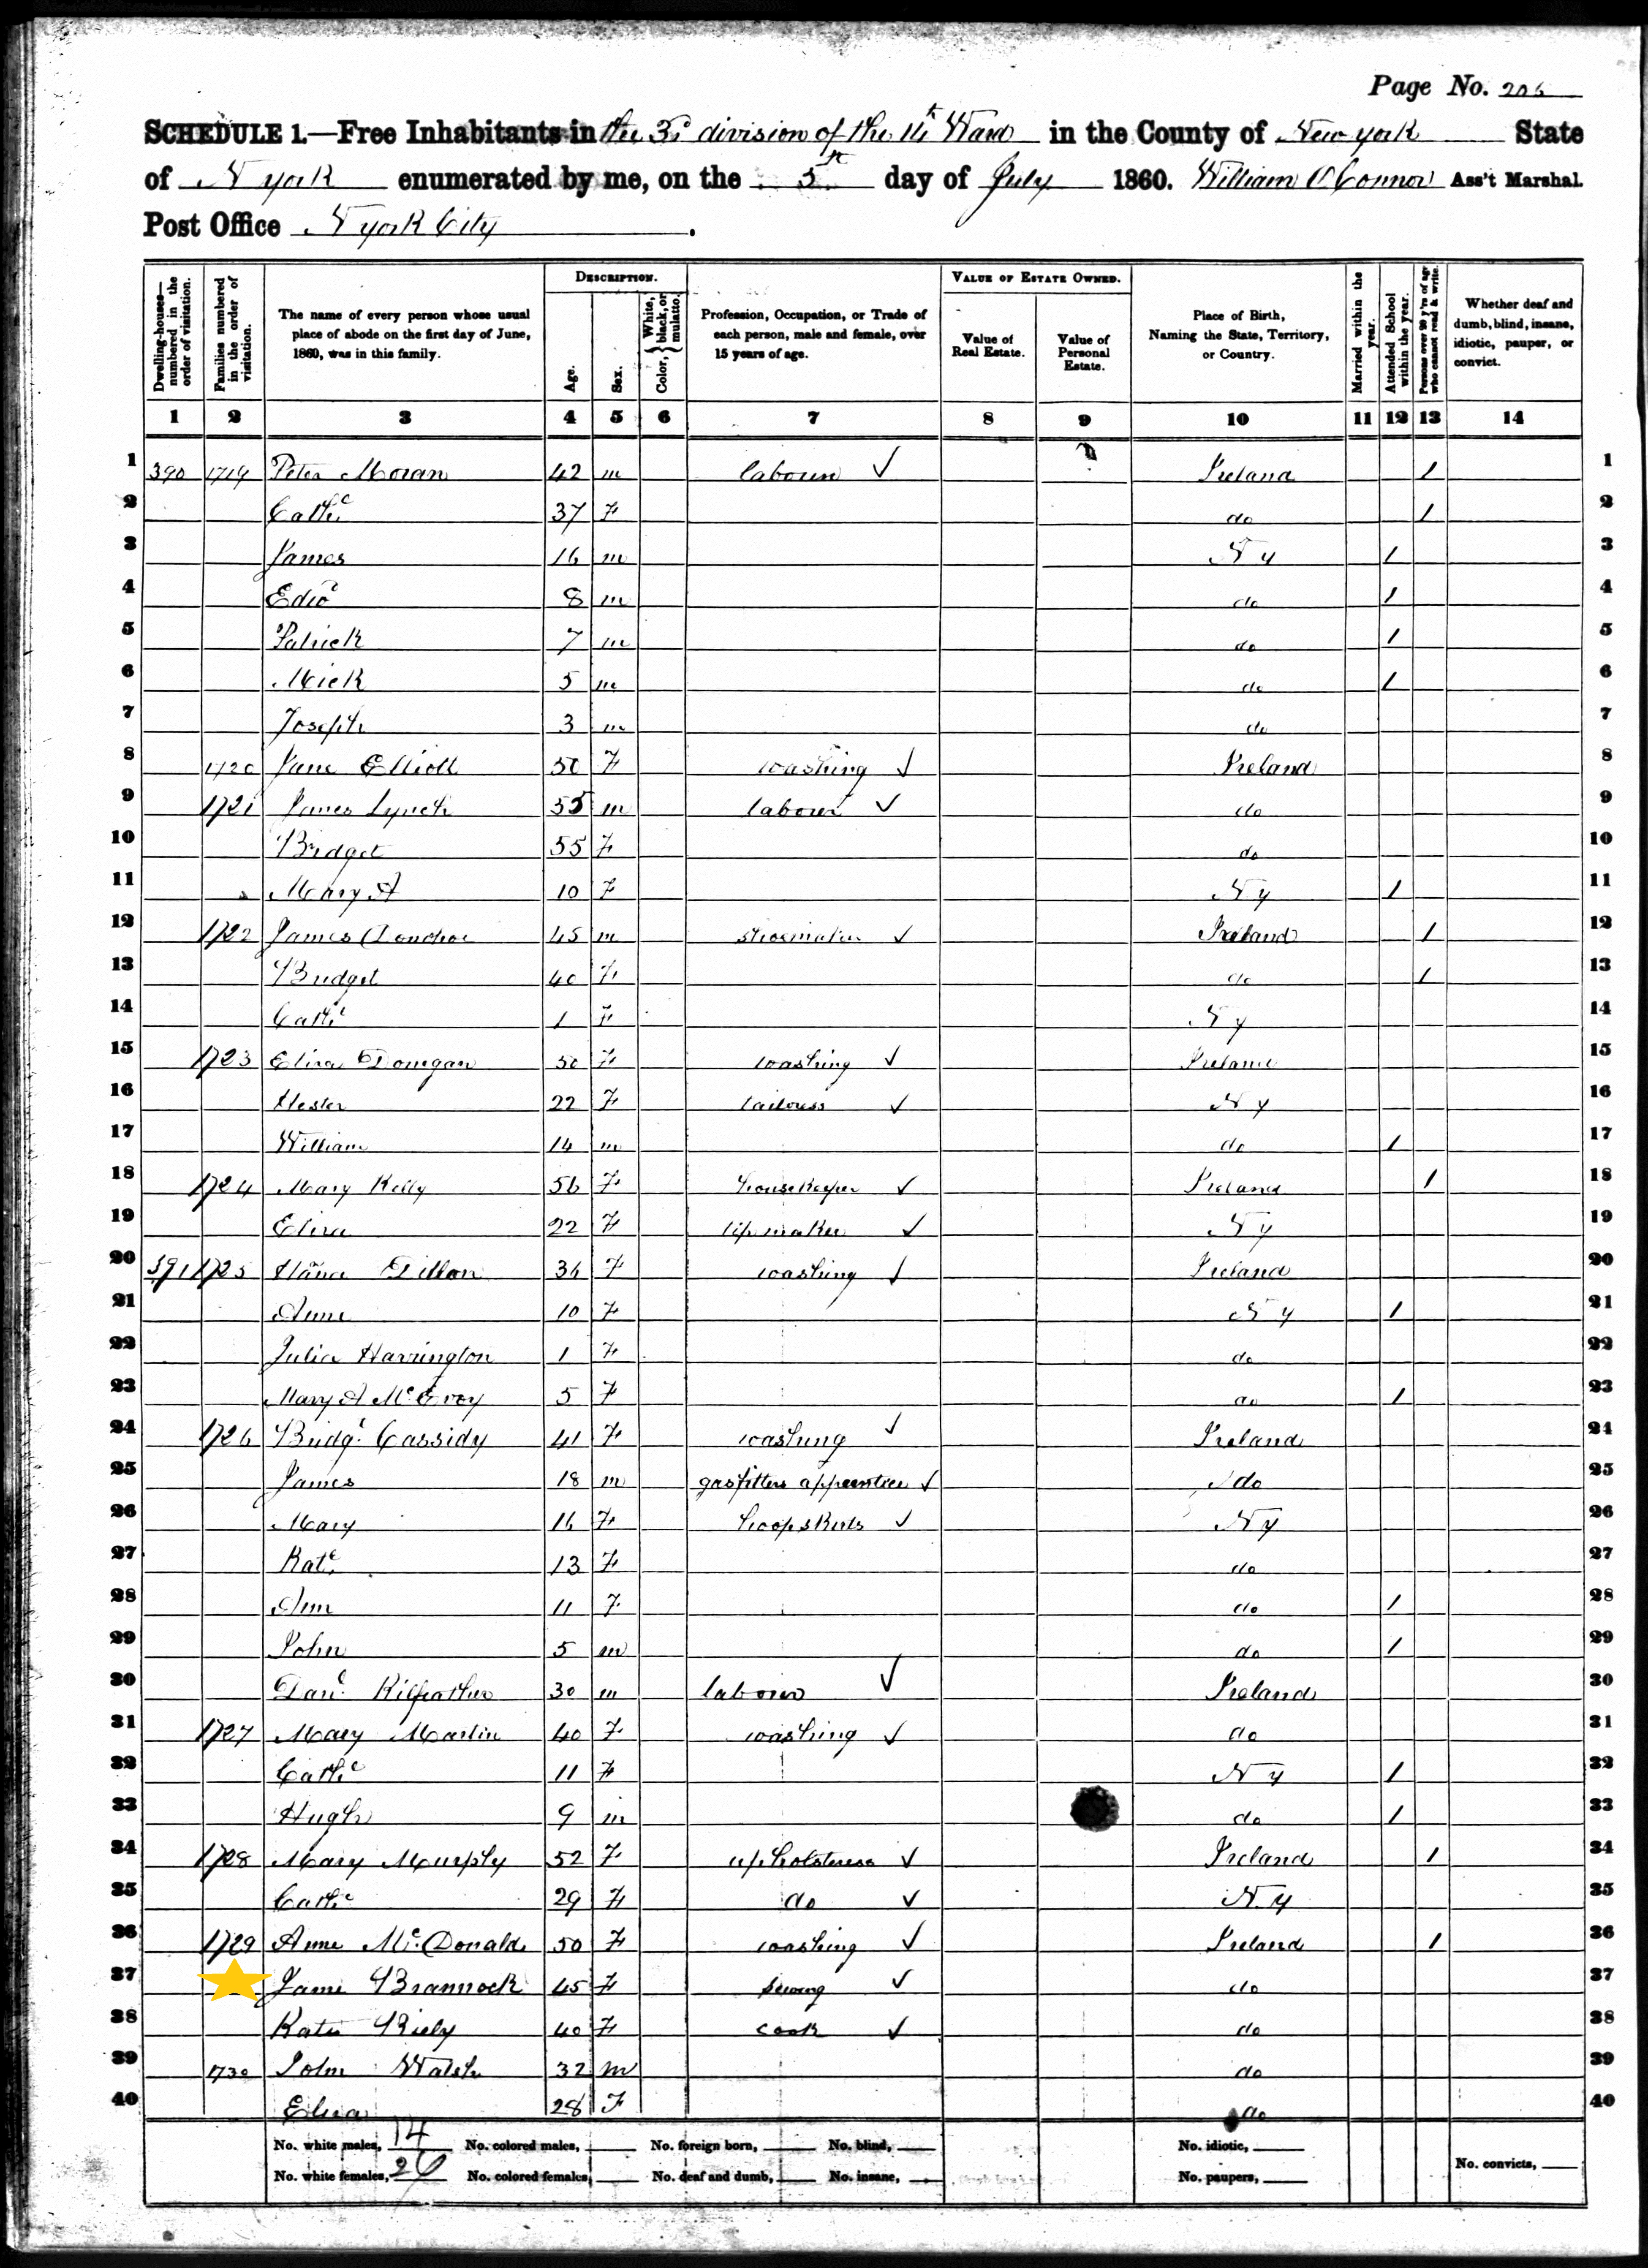 Page No. 206
SCHEDULE 1.—Free Inhabitants in the 3d division of the 11t Ward in the County of New york State
of N york enumerated by me, on the 5th day of July 1860. William O'Connor Ass't Marshal.
Post Office N york City.
DESCRIPTION. VALUE OF ESTATE OWNED.
Dwelling-houses—numbered in the order of visitation. Families numbered in the order of visitation. The name of every person whose usual place of abode on the first day of June, 1860, was in this family. Age. Sex. Color, { White, black, or mulatto. Profession, Occupation, or Trade of each person, male and female, over 15 years of age. Value of Real Estate. Value of Personal Estate. Place of Birth, Naming the State, Territory, or Country. Married within the year. Attended School within the year. Persons over 20 y'rs of age who cannot read & write. Whether deaf and dumb, blind, insane, idiotic, pauper, or convict.
1 2 3 4 5 6 7 8 9 10 11 12 13 14
1 390 1719 Peter Moran 42 m labourer ✓ Ireland 1 1
2 Cathe 37 F do 1 2
3 James 16 m N y 1 3
4 Edwd 8 m do 1 4
5 Patrick 7 m do 1 5
6 Mick 5 m do 1 6
7 Joseph 3 m do 7
8 1720 Jane Elliott 50 F washing ✓ Ireland 8
9 1721 James Lynch 55 m labourer ✓ do 9
10 Bridget 55 F do 10
11 Mary A 10 F N y 1 11
12 1722 James Donohoe 45 m shoemaker ✓ Ireland 1 12
13 Bridget 40 F do 1 13
14 Cathe 1 F N y 14
15 1723 Eliza Donigan 50 F washing ✓ Ireland 15
16 Hester 22 F tailoress ✓ N y 16
17 William 14 m do 1 17
18 1724 Mary Kelly 56 F housekeeper ✓ Ireland 1 18
19 Eliza 22 F maker ✓ N y 19
20 391 1725 Hana Dillon 36 F washing ✓ Ireland 20
21 Anne 10 F N y 1 21
22 Julia Harrington 1 F do 22
23 Mary A McEvoy 5 F do 1 23
24 1726 Bridgt Cassidy 41 F washing ✓ Ireland 24
25 James 18 m gasfitters apprentice ✓ do 25
26 Mary 16 F hoopskirts ✓ N y 26
27 Kate 13 F do 27
28 Ann 11 F do 1 28
29 John 5 m do 1 29
30 Danl Kilfeather 30 m labourer ✓ Ireland 30
31 1727 Mary Martin 40 F washing ✓ do 31
32 Cathe 11 F N y 1 32
33 Hugh 9 m do 1 33
34 1728 Mary Murphy 52 F upholsteress ✓ Ireland 1 34
35 Cathe 29 F do ✓ N y 35
36 1729 Anne McDonald 50 F washing ✓ Ireland 1 36
37 Jane Brannock 45 F sewing ✓ do 37
38 Kate Riely 40 F cook ✓ do 38
39 1730 John Walsh 32 m do 39
40 Eliza 28 F do 40
No. white males, 14 No. colored males, No. foreign born, No. blind, No. idiotic,
No. white females, 26 No. colored females, No. deaf and dumb, No. insane, No. paupers, No. convicts,